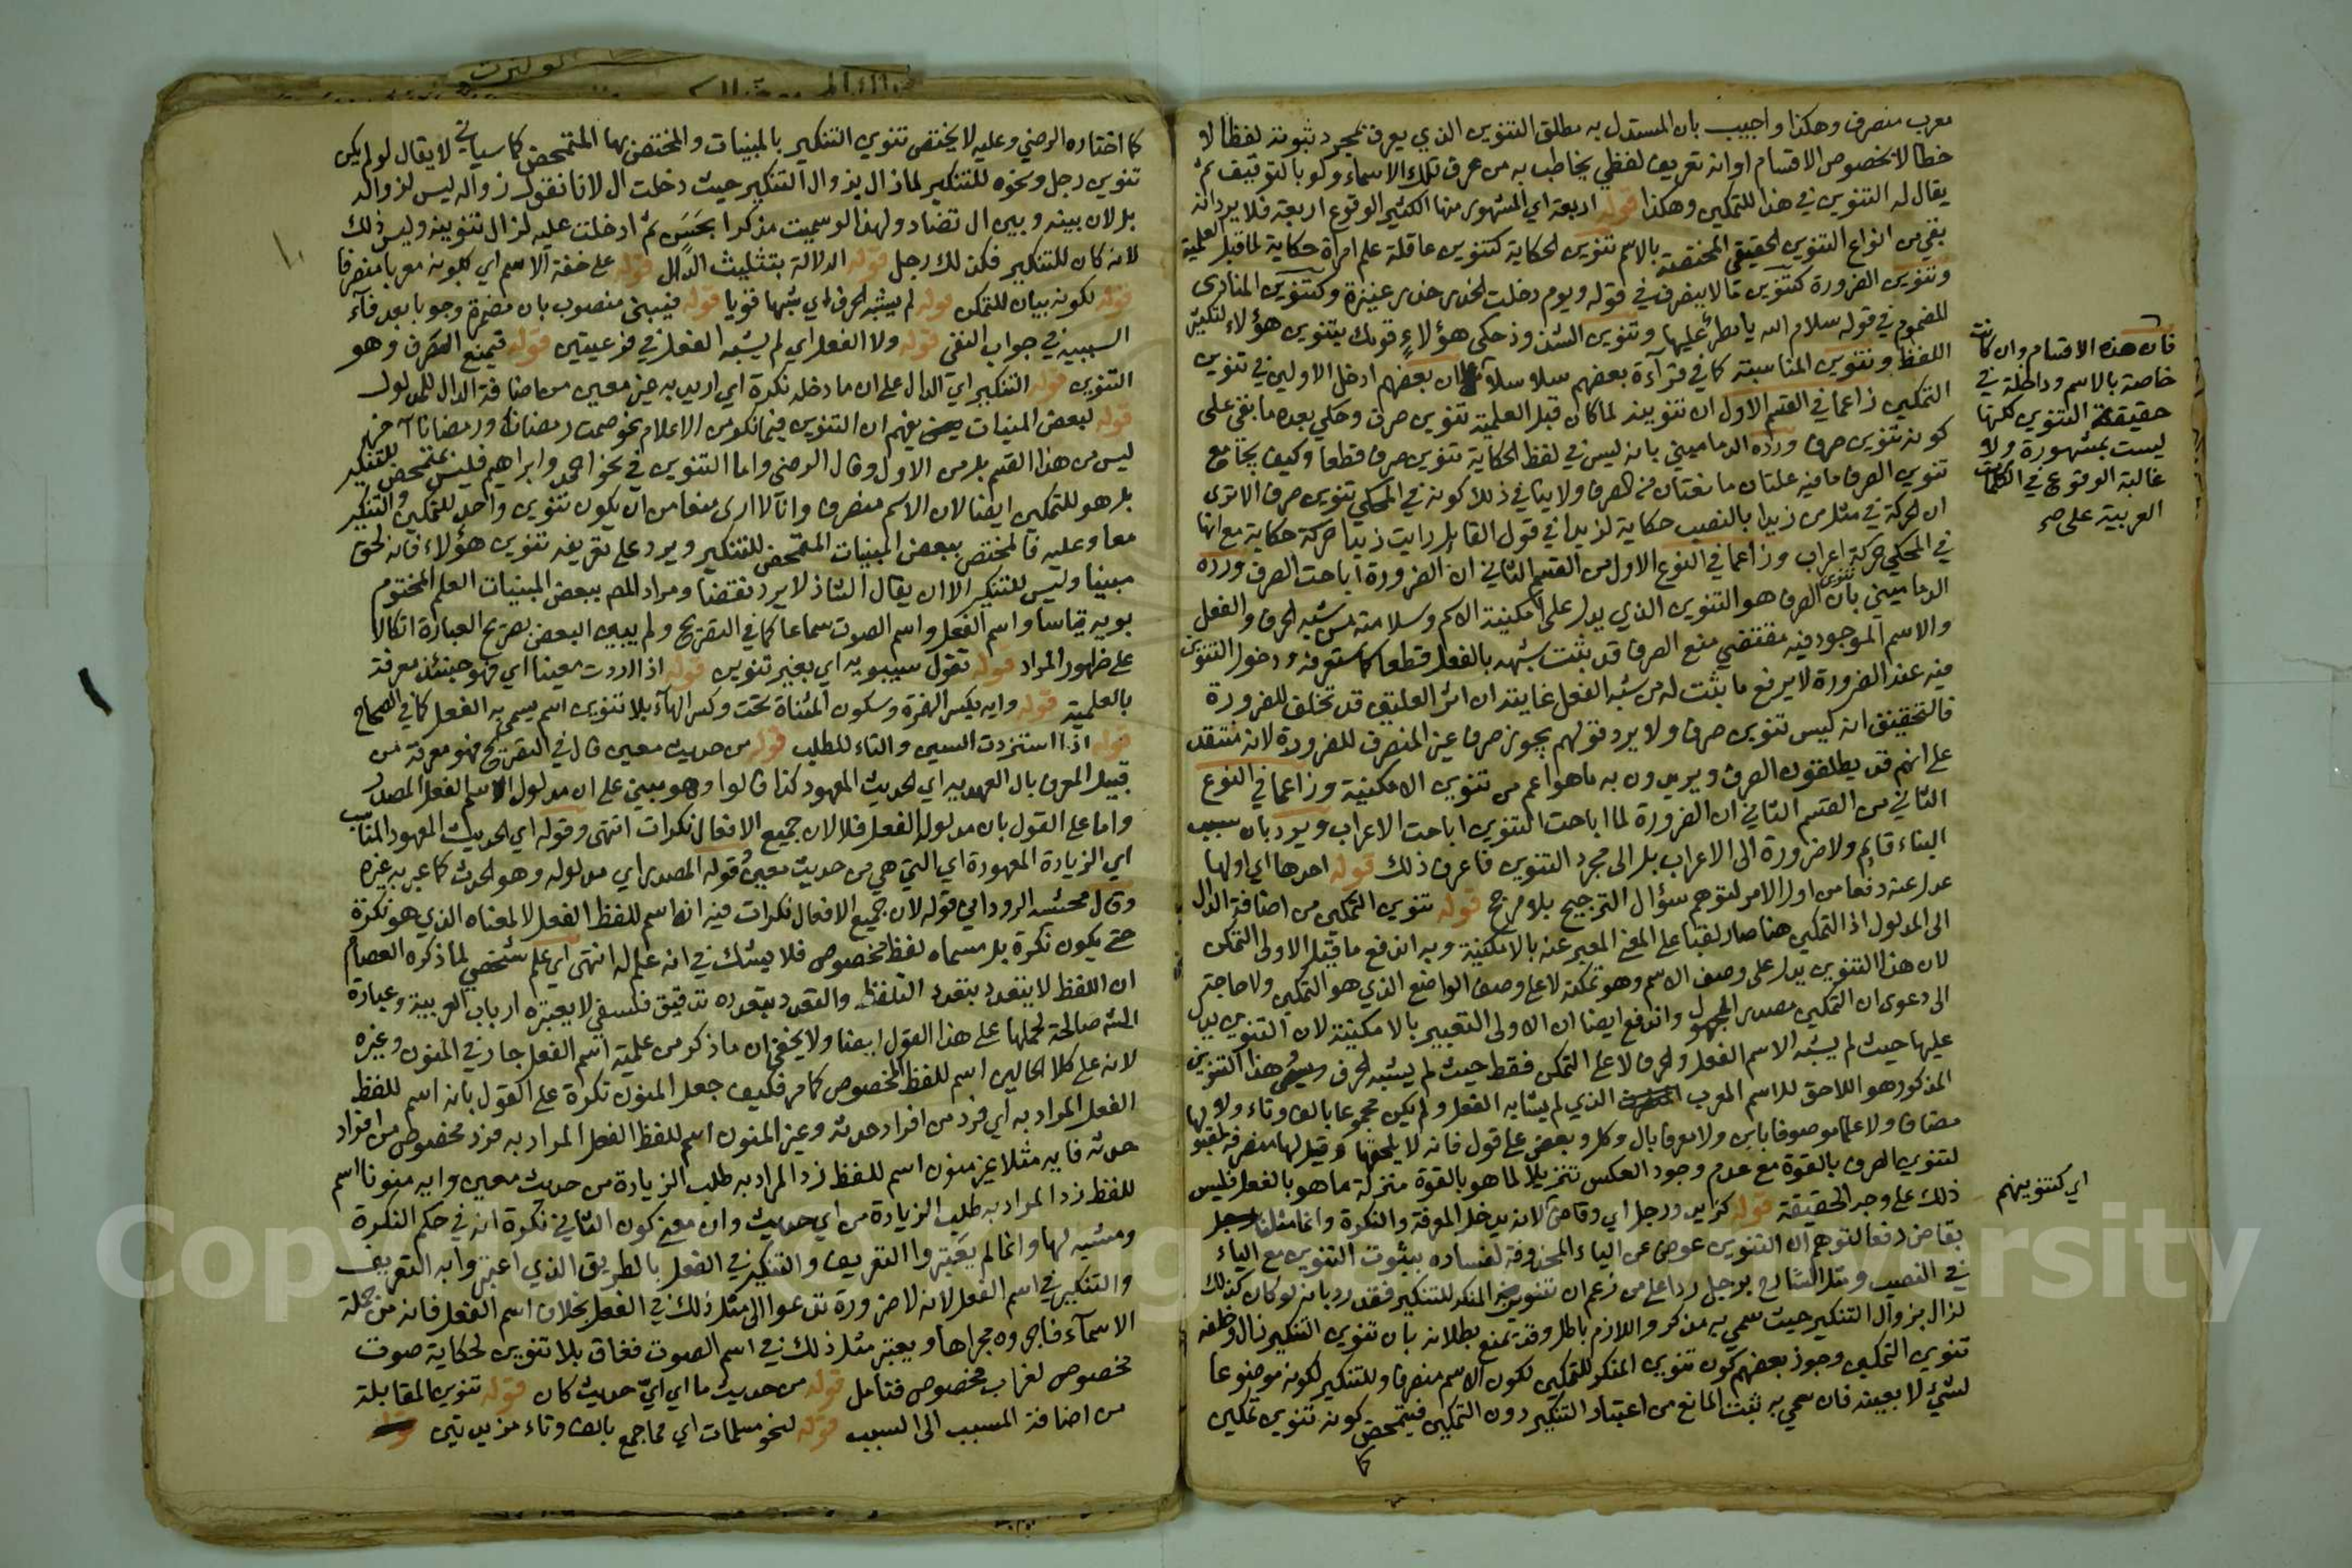 معرب منصرف وهكذا واجيب بان المستدل به مطلق التنوين الذي يعرف بمجرد ثبوته لفظا لا
خطا لا بخصوص الاقسام او انه تعريف لفظي يخاطب به من عرف تلك الاسماء ولو بالتوقيف ثم
يقال له التنوين في هذا للتمكين وهكذا قوله اربعة اي المشهور منها الكثير الوقوع اربعة فلا يرد انه
بقي من انواع التنوين الحقيقي المختصة بالاسم تنوين الحكاية كتنوين عاقلة علم امراة حكاية لما قبل العلمية
وتنوين الضرورة كتنوين ما لا ينصرف في قوله ويوم دخلت الخدر خدر عنيزة وكتنوين المنادى
المضموم في قوله سلام الله يا مطر عليها وتنوين الشذوذ حكى هؤلاءٍ قومك بتنوين هؤلاء لتكثير
اللفظ وتنوين المناسبة كما في قرآءة بعضهم سلاسلا ان بعضهم ادخل الاولين في تنوين
التمكين زاعما في القسم الاول ان تنوينه لما كان قبل العلمية تنوين صرف وحكي بعده ما بقي على
كونه تنوين صرف ورده الدماميني بانه ليس في لفظ الحكاية تنوين صرف قطعا وكيف يجامع
تنوين الصرف ما فيه علتان مانعتان من الصرف ولا ينافي ذلك كونه في المحكي تنوين صرف الا ترى
ان الحركة في مثل من زيدا بالنصب حكاية لزيدا في قول القايل رايت زيدا حركة حكاية مع انها
في المحكي حركة اعراب وزاعما في النوع الاول من القسم الثاني ان الضرورة اباحت الصرف ورده
الدماميني بان تنوين الصرف هو التنوين الذي يدل على امكنية الاسم وسلامته من شبه الحرف والفعل
والاسم الموجود فيه مقتضي منع الصرف قد يثبت شبهه بالفعل قطعا كما ستعرفه ودخول التنوين
فيه عند الضرورة لا يرفع ما يثبت له من شبه الفعل غايته ان اثر العلتين قد تخلف للضرورة
فالتحقيق انه ليس تنوين صرف ولا يرد قولهم يجوز صرف غير المنصرف للضرورة لانه منتقد
على انهم قد يطلقون الصرف ويريدون به ما هو اعم من تنوين الامكنية وزاعما في النوع
الثاني من القسم الثاني ان الضرورة لما اباحت التنوين اباحت الاعراب ويرد بان سبب
البناء قايم ولا ضرورة الى الاعراب بل الى مجرد التنوين فاعرف ذلك قوله احدها اي اولها
عدل عنه دفعا من اول الامر لتوهم سؤال الترجيح بلا مرجح قوله تنوين التمكين من اضافة الدال
الى المدلول اذ التمكين هنا صار لقبا على المعنى المعبر عنه بالامكنية وبه اندفع ما قيل الاولى التمكن
لان هذا التنوين يدل على وصف الاسم وهو تمكنه لا على وصف الواضع الذي هو التمكين ولا حاجة
الى دعوى ان التمكين مصدر المجهول واندفع ايضا ان الاولى التعبير بالامكنية لان التنوين يدل
عليها حيث لم يشبه الاسم الفعل والحرف لا على التمكن فقط حيث لم يشبه الحرف هذا التنوين
المذكور هو اللاحق للاسم المعرب الذي لم يشابه الفعل ولم يكن مجموعا بالف وتاء ولا
مضاف ولا علما موصوفا بابن ولا معرفا بال وكل وبعض على قول فانه لا يلحقها وقيل لها منصرفة لقبولها
لتنوين الصرف بالقوة مع عدم وجود العكس تنزيلا لما هو بالقوة منزلة ما هو بالفعل فليس
ذلك على وجه الحقيقة قوله كزيد ورجل اي وقاض لانه يدخل المعرفة والنكرة وانما مثلنا
بقاض دفعا لتوهم ان التنوين عوض عن الياء المحذوفة لفساده بثبوت التنوين مع الياء
في النصب ومثل الشارح برجل ردا على من زعم ان تنوين المنكر للتنكير فقد رد بانه لو كان كذلك
لزال بزوال التنكير حيث سمي به مذكر واللازم باطل وقد يمنع بطلانه بان تنوين التنكير زال وخلفه
تنوين التمكين وجوز بعضهم كون تنوين المنكر للتمكين لكون الاسم منصرفا وللتنكير لكونه موضوعا
لشيء لا بعينه فان سمي به ثبت المانع من اعتبار التنكير دون التمكين فيتمحض كونه تنوين تمكين
كما
فان هذه الاقسام وان كانت
خاصة بالاسم وداخلة في
حقيقة التنوين لكنها
ليست بمشهورة ولا
غالبة الوقوع في الكلمات
العربية على
اي كتنوينهم
كما اختاره الرضي وعليه لا يختص تنوين التنكير بالمبنيات والمختص بها المتمحض كما سياتي لا يقال لو لم يكن
تنوين رجل ونحوه للتنكير لما زال بزوال التنكير حيث دخلت ال لانا نقول زواله ليس لزواله
بل لان بينه وبين ال تضاد ولهذا لو سميت مذكرا بحسن ثم ادخلت عليه لزال تنوينه وليس ذلك
لانه كان للتنكير فكذلك رجل قوله الدلالة بتثليث الدال قوله على خفة الاسم اي بكونه معربا منصرفا
قوله لكونه بيان للتمكن قوله لم يشبه الحرف اي شبها قويا قوله فيبنى منصوب بان مضمرة وجوبا بعد فآء
السببية في جواب النفي قوله ولا الفعل اي لم يشبه الفعل في فرعيتين قوله فيمنع الصرف وهو
التنوين قوله التنكير اي الدال على ان ما دخله نكرة اي اريد به غير معين من اضافة الدال للمدلول
قوله لبعض المبنيات يفهم ان التنوين فيما نكر من الاعلام نحو صمت رمضان ورمضانا آخر
ليس من هذا القسم بل من الاول وقال الرضي واما التنوين في نحو احمد وابراهيم فليس بمتمحض للتنكير
بل هو للتمكين ايضا لان الاسم منصرف وانا لا ارى منعا من ان يكون تنوين واحد للتمكين والتنكير
معا وعليه فالمختص ببعض المبنيات المتمحض للتنكير ويرد على تعريفه تنوين هؤلاء فانه لحق
مبنيا وليس للتنكير الا ان يقال الشاذ لا يرد نقضا ومراد المص ببعض المبنيات العلم المختوم
بويه قياسا واسم الفعل واسم الصوت سماعا كما في التصريح ولم يبين البعض بصريح العبارة اتكالا
على ظهور المراد قوله تقول سيبويه اي بغير تنوين قوله اذا اردت معينا اي فهو حينئذ معرفة
بالعلمية قوله وايه بكسر الهمزة وسكون المثناة تحت وكسر الهآء بلا تنوين اسم يسمى به الفعل كما في الصحاح
قوله اذا استزدت السين والتاء للطلب قوله من حديث معين قال في التصريح فهو معرفة من
قبيل المعرف بال العهدية اي الحديث المعهود كذا قالوا وهو مبني على ان مدلول اسم الفعل المصدر
واما على القول بان مدلوله الفعل فلا لان جميع الافعال نكرات انتهى وقوله اي الحديث المعهود المناسب
اي الزيادة المعهودة اي التي هي من حديث معين وقوله المصدر اي مدلوله وهو الحدث كما عبر به غيره
وقال محشيه الروداني قوله لان جميع الافعال نكرات فيه انه اسم للفظ الفعل لا لمعناه الذي هو نكرة
حتى يكون نكرة بل مسماه لفظ مخصوص فلا يشك في انه علم له انتهى اي علم شخصي لما ذكره العصام
ان اللفظ لا يتعدد بتعدد التلفظ والتعدد بتعدده تدقيق فلسفي لا يعتبره ارباب العربية وعبارة
الش صالحة لحملها على هذا القول ايضا ولا يخفى ان ما ذكر من علمية اسم الفعل جار في المنون وغيره
لانه على كلا الحالين اسم للفظ المخصوص كما مر فكيف جعل المنون نكرة على القول بانه اسم للفظ
الفعل المراد به اي فرد من افراد حدثه وغير المنون اسم للفظ الفعل المراد به فرد مخصوص من افراد
حدثه فايه مثلا غير منون اسم للفظ زد المراد به طلب الزيادة من حديث معين وايه منونا اسم
للفظ زد المراد به طلب الزيادة من اي حديث وان معنى كون الثاني نكرة انه في حكم النكرة
ومشبه لها وانما لم يعتبروا التعريف والتنكير في الفعل بالطريق الذي اعتبروا به التعريف
والتنكير في اسم الفعل لانه لا ضرورة تدعوا الى مثل ذلك في الفعل بخلاف اسم الفعل فانه من جملة
الاسمآء فاجروه مجراها ويعتبر مثل ذلك في اسم الصوت فغاق بلا تنوين لحكاية صوت
مخصوص لغراب مخصوص فتامل قوله من حديث ما اي اي حديث كان قوله تنوين المقابلة
من اضافة المسبب الى السبب قوله لنحو مسلمات اي مما جمع بالف وتاء مزيدتين